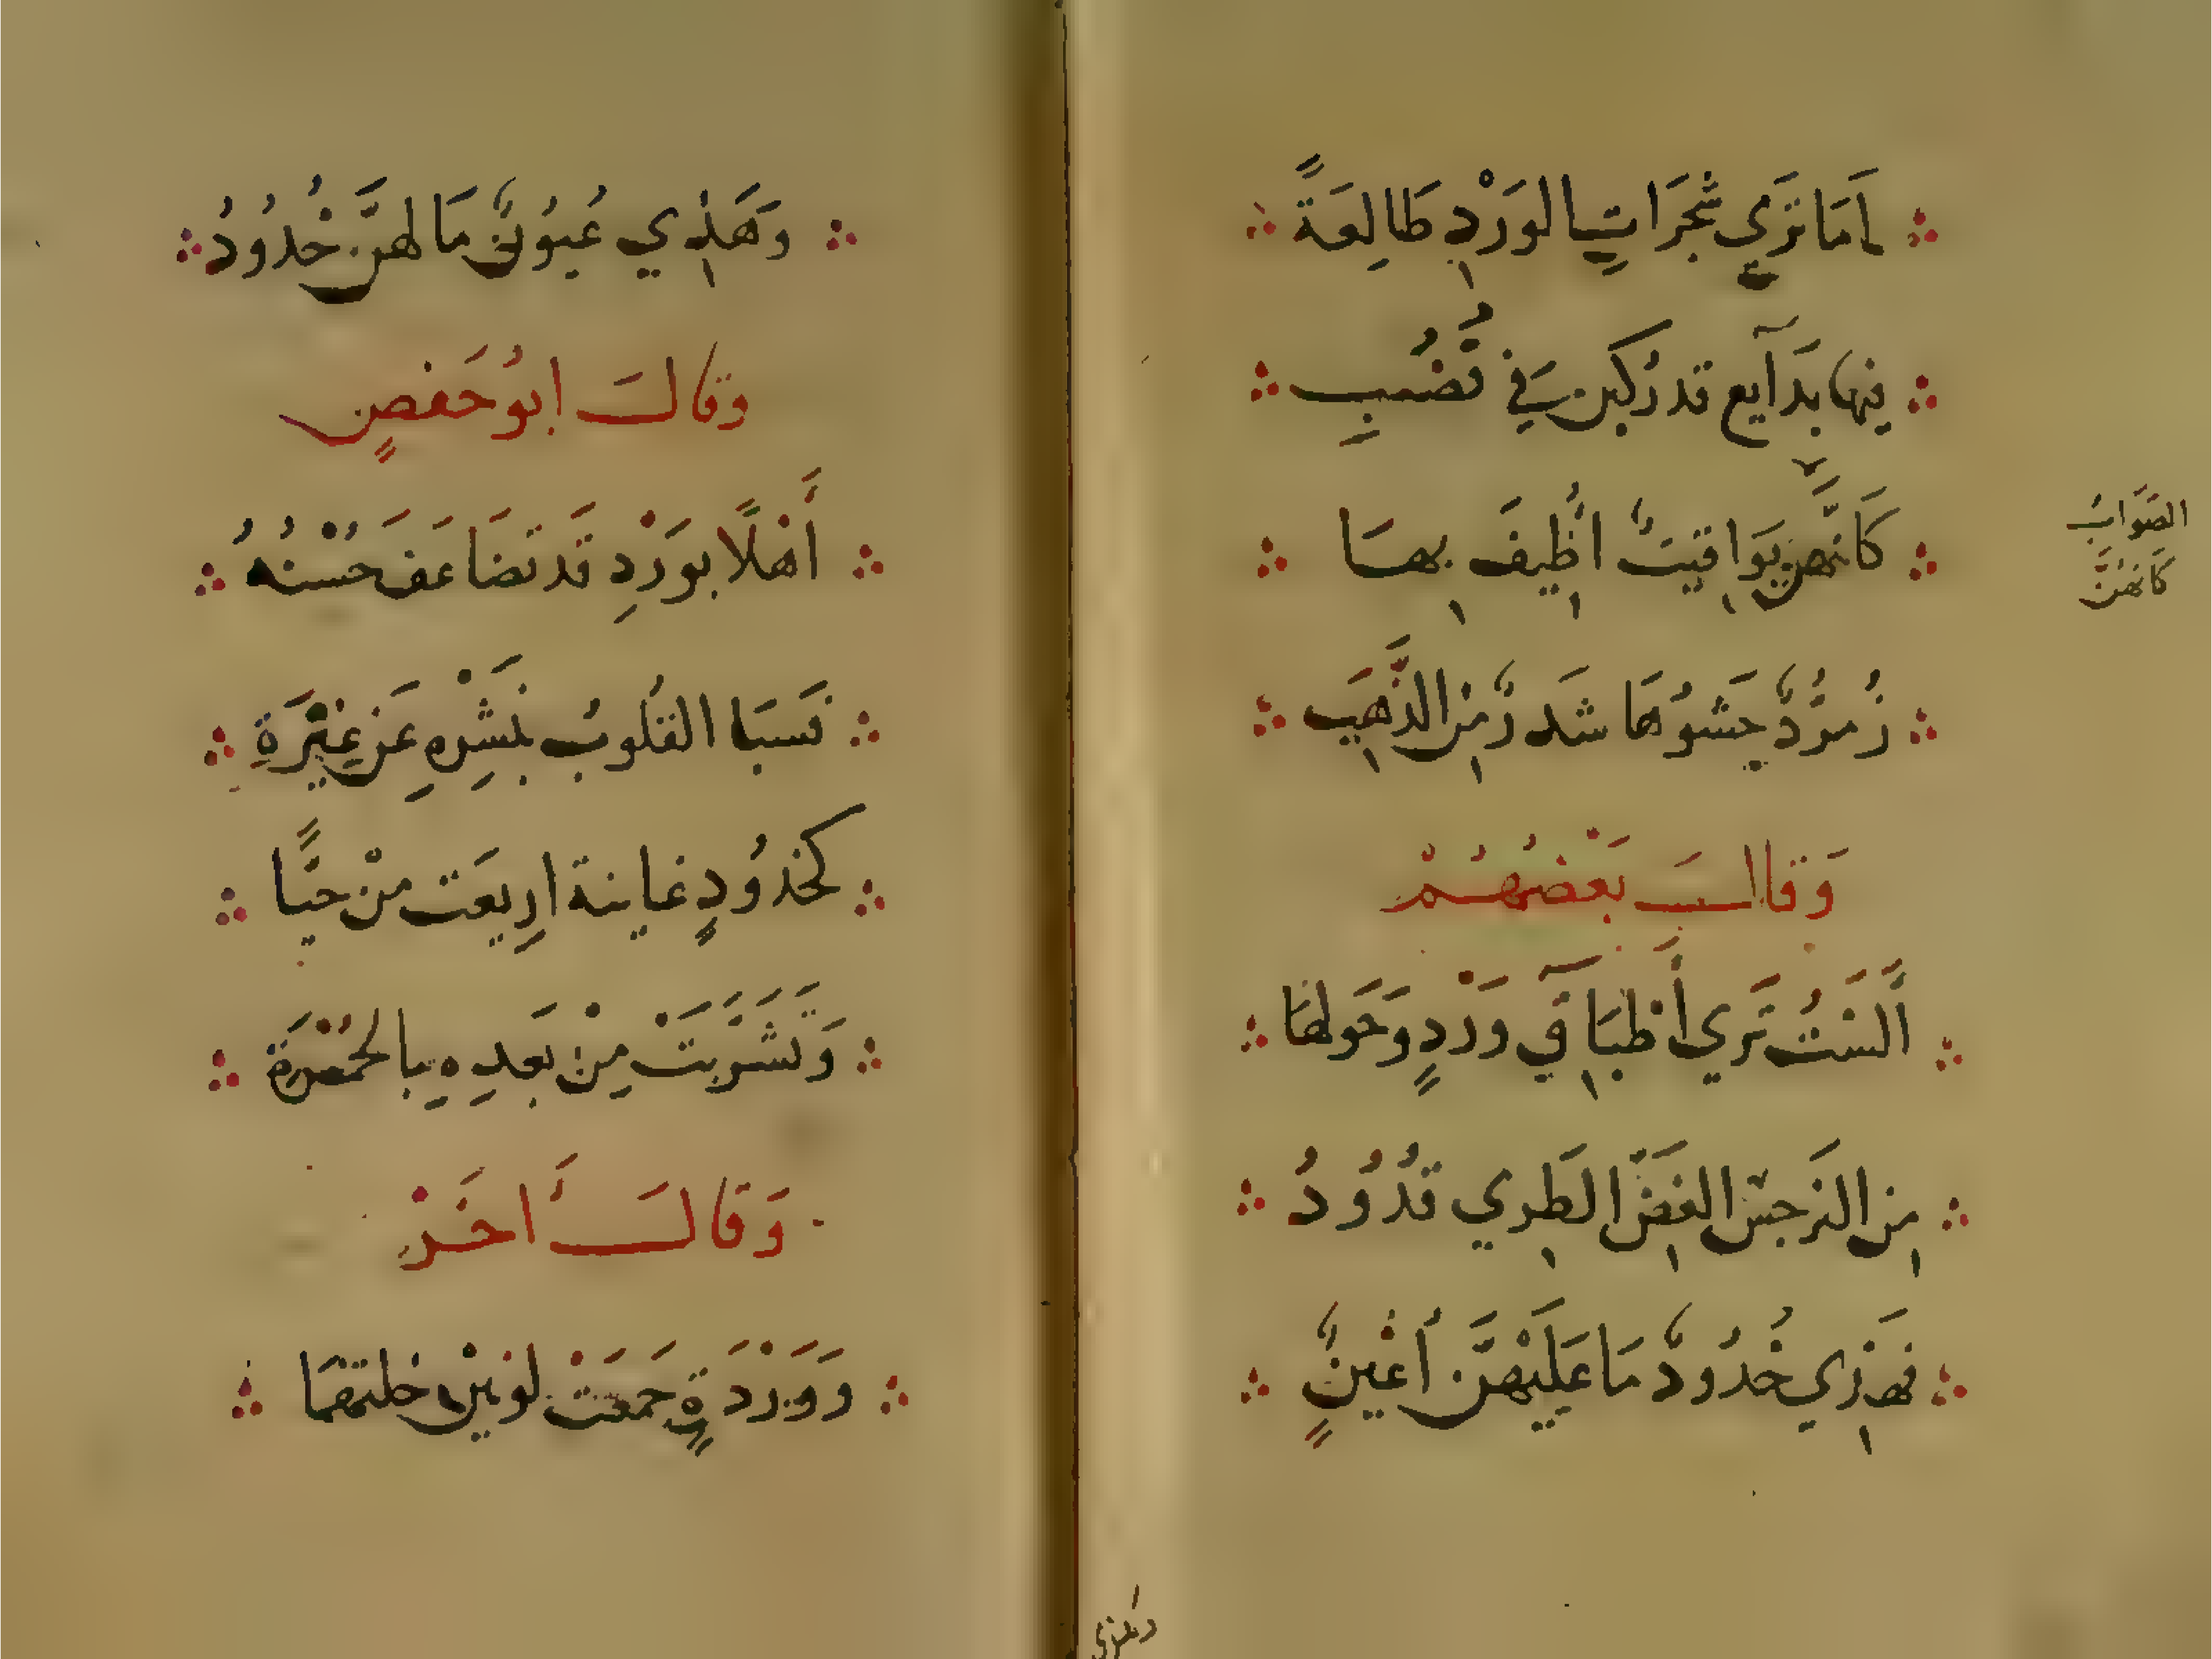 امَا تَرَي شَجَرَاتِ الوَرْدِ طَالِعَةً
فِيها بَدَآيع قد رُكبن فِي قُضُبِ
كَانَّهن يَوَاقيتٌ اُظِيفَ بهَا
زُمرُّدٌ حَشوُهَا شَدرٌ من الذَّهَبِ
وَقالَ بَعْضُهُمْ
أَلَسْتُ تَرَي أَظبَآ في وَرْدٍ وَحَولهَا
مِن النَرجس الغَضِّ الطَرِي قُدُودُ
فهَذِي خُدُودٌ مَا عَلَيْهنَّ أعْينٌ
الصَوَابُ
كَانهُنَّ
وَهَذِي عُيُونٌ مَا لهنَّ خُدُودُ
وقالَ ابُو حَفصٍ
أَهْلًا بوَرْدِ قَد تَضَاعَفَ حُسْنُهُ
تَسبَا القلُوبُ بنَشْرِهِ عَن غِيْرَةِ
كخدُودِ غاينة اريعَت منْ حيًّا
وَتَشَرَّبَتْ مِنْ بَعدِهِ بالحُمْرَةِ
وَقالَ اَخَرْ
وَوَرْدَةٍ جَمَعَتْ لونينْ خلتهمَا